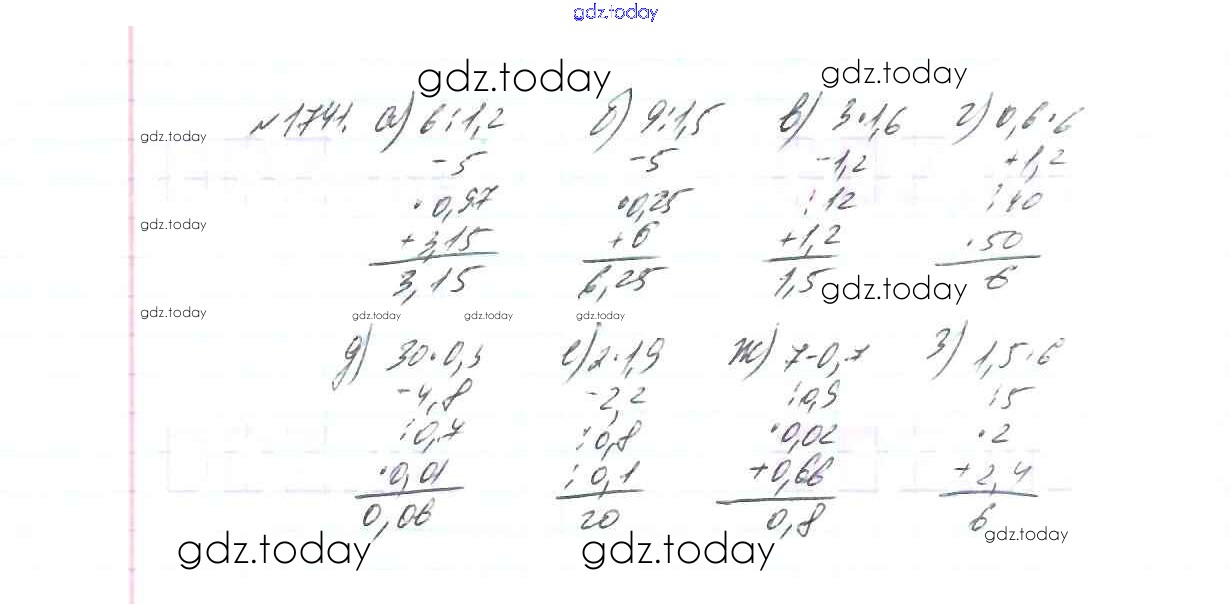 gdz.today
gdz.today gdz.today
№1741. а) 6:1,2 б) 9:1,5 в) 3·1,6 г) 0,6·6
gdz.today -5 -5 -1,2 +1,2
·0,97 ·0,25 :12 :40
gdz.today +3,15 +6 +1,2 ·50
3,15 6,25 1,5 gdz.today 6
gdz.today gdz.today gdz.today gdz.today
д) 30·0,3 е) 2·1,9 ж) 7-0,7 з) 1,5·6
-4,8 -2,2 :0,9 :5
:0,7 :0,8 ·0,02 ·2
·0,01 :0,1 +0,66 +2,4
0,06 20 0,8 6 gdz.today
gdz.today gdz.today